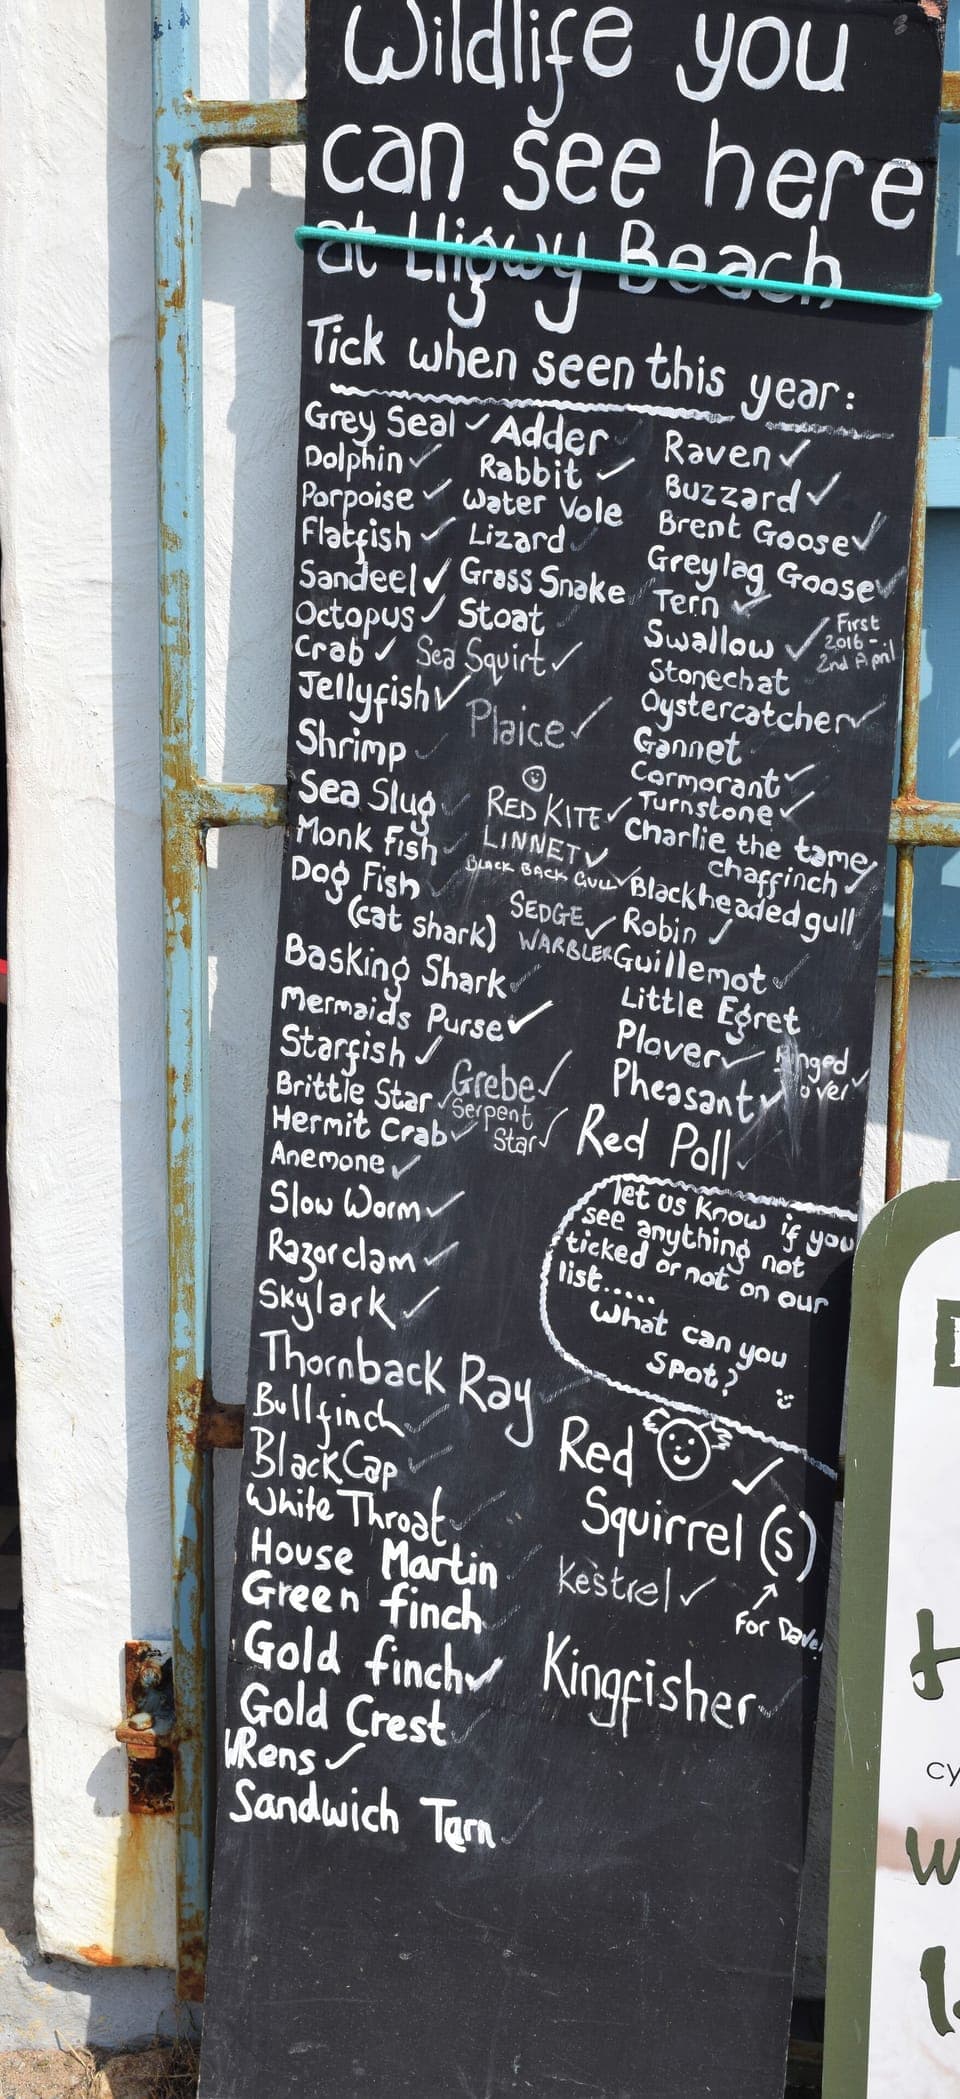 Wildlife you
can see here
at Lligwy Beach
Tick when seen this year:
Grey Seal ✓
Dolphin ✓
Porpoise ✓
Flatfish ✓
Sandeel ✓
Octopus ✓
Crab ✓
Jellyfish ✓
Shrimp ✓
Sea Slug ✓
Monk Fish ✓
Dog Fish ✓
(cat shark)
Basking Shark ✓
Mermaids Purse ✓
Starfish ✓
Brittle Star ✓
Hermit Crab ✓
Anemone ✓
Slow Worm ✓
Razorclam ✓
Skylark ✓
Thornback Ray ✓
Bullfinch ✓
BlackCap ✓
White Throat ✓
House Martin ✓
Green finch ✓
Gold finch ✓
Gold Crest ✓
WRens ✓
Sandwich Tern ✓
Adder ✓
Rabbit ✓
Water Vole
Lizard ✓
Grass Snake ✓
Stoat ✓
Sea Squirt ✓
Plaice ✓
RED KITE ✓
LINNET ✓
BLACK BACK GULL ✓
SEDGE ✓
WARBLER
Grebe ✓
Serpent
Star ✓
Raven ✓
Buzzard ✓
Brent Goose ✓
Greylag Goose ✓
Tern ✓
Swallow ✓
First
2016 -
2nd April
Stonechat
Oystercatcher ✓
Gannet ✓
Cormorant ✓
Turnstone ✓
Charlie the tame
chaffinch ✓
Blackheaded gull ✓
Robin ✓
Guillemot ✓
Little Egret
Plover ✓
Ringed
Plover ✓
Pheasant ✓
Red Poll ✓
let us know if you
see anything not
ticked or not on our
list......
What can you
spot?
Red ✓
Squirrel (s)
For Dave
Kestrel ✓
Kingfisher ✓
cy